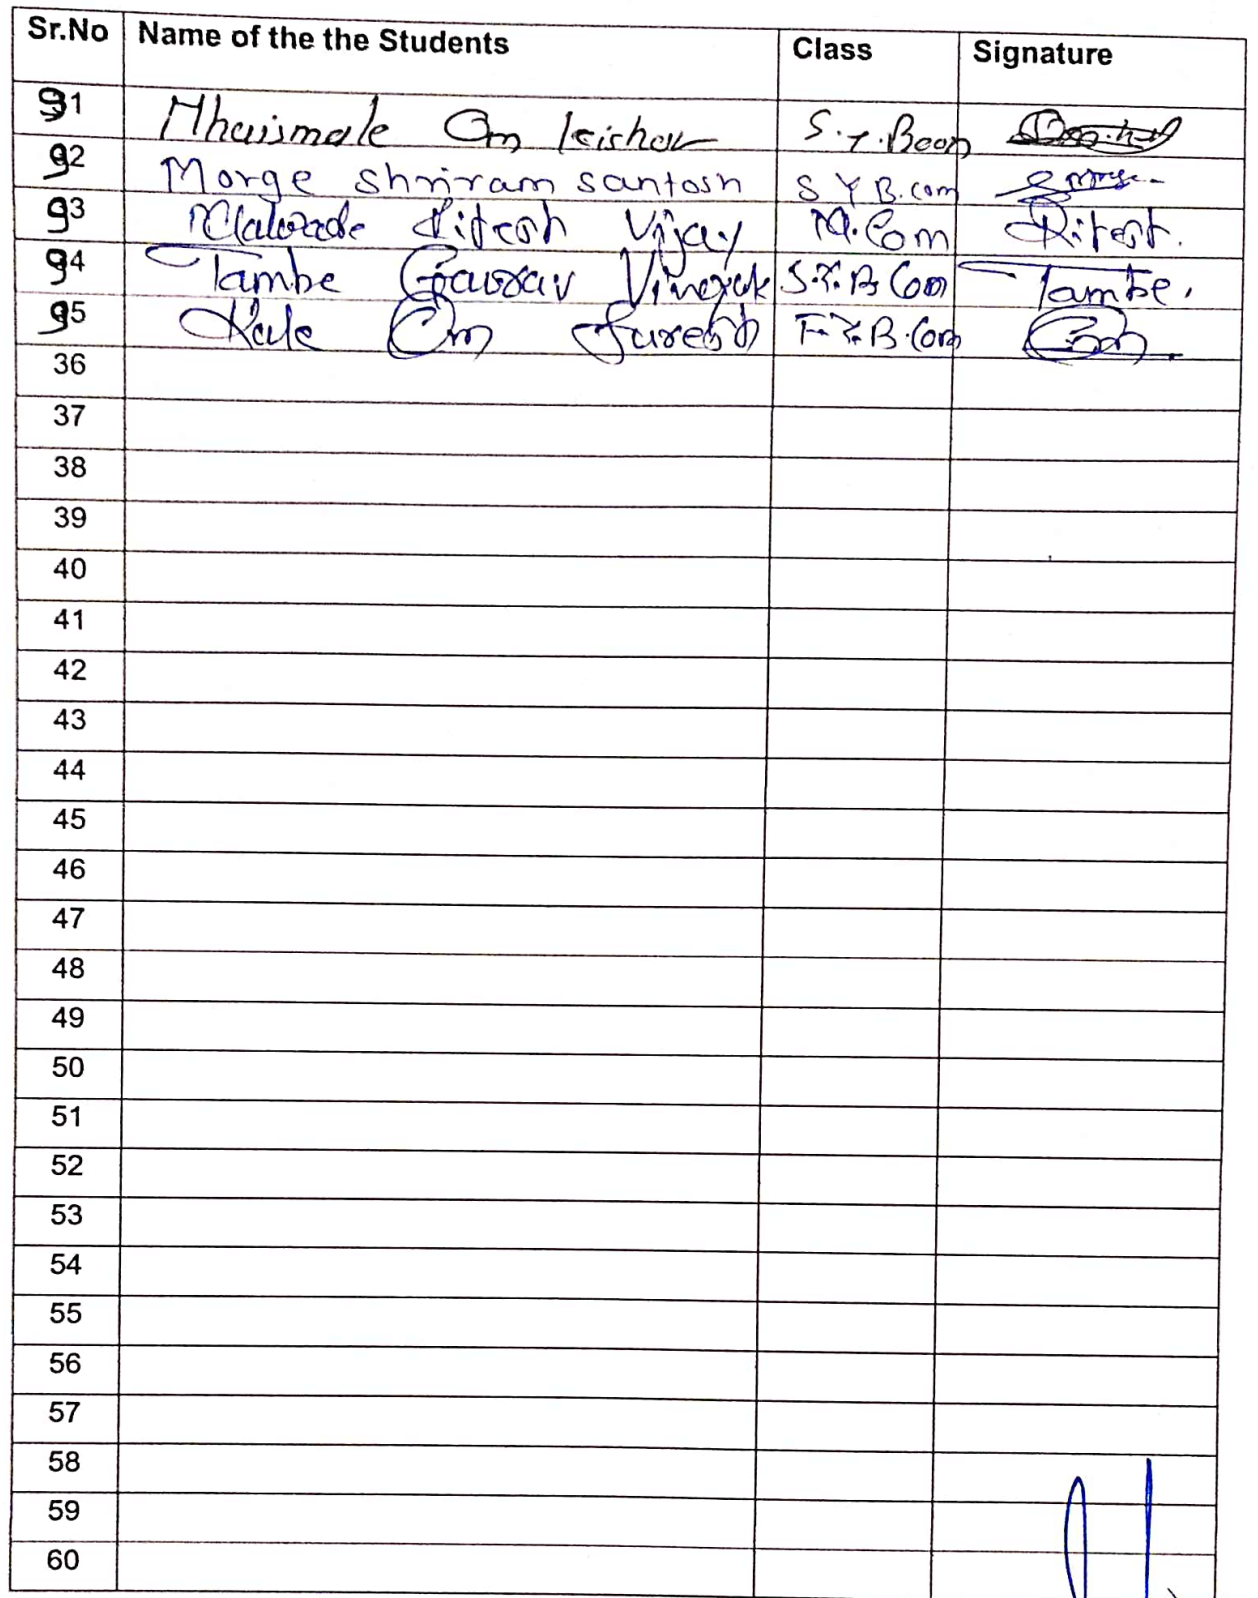 Sr.No Name of the the Students Class Signature
91 Mhaismale Om kishor S.Y.Bcom
92 Morge shriram santosh S Y B.com
93 Ritesh Vijay M.Com Ritesh.
94 Tambe Gaurav Vinayak S.Y.B.Com Tambe.
95 Kale Om Suresh F.Y.B.Com Om
36
37
38
39
40
41
42
43
44
45
46
47
48
49
50
51
52
53
54
55
56
57
58
59
60